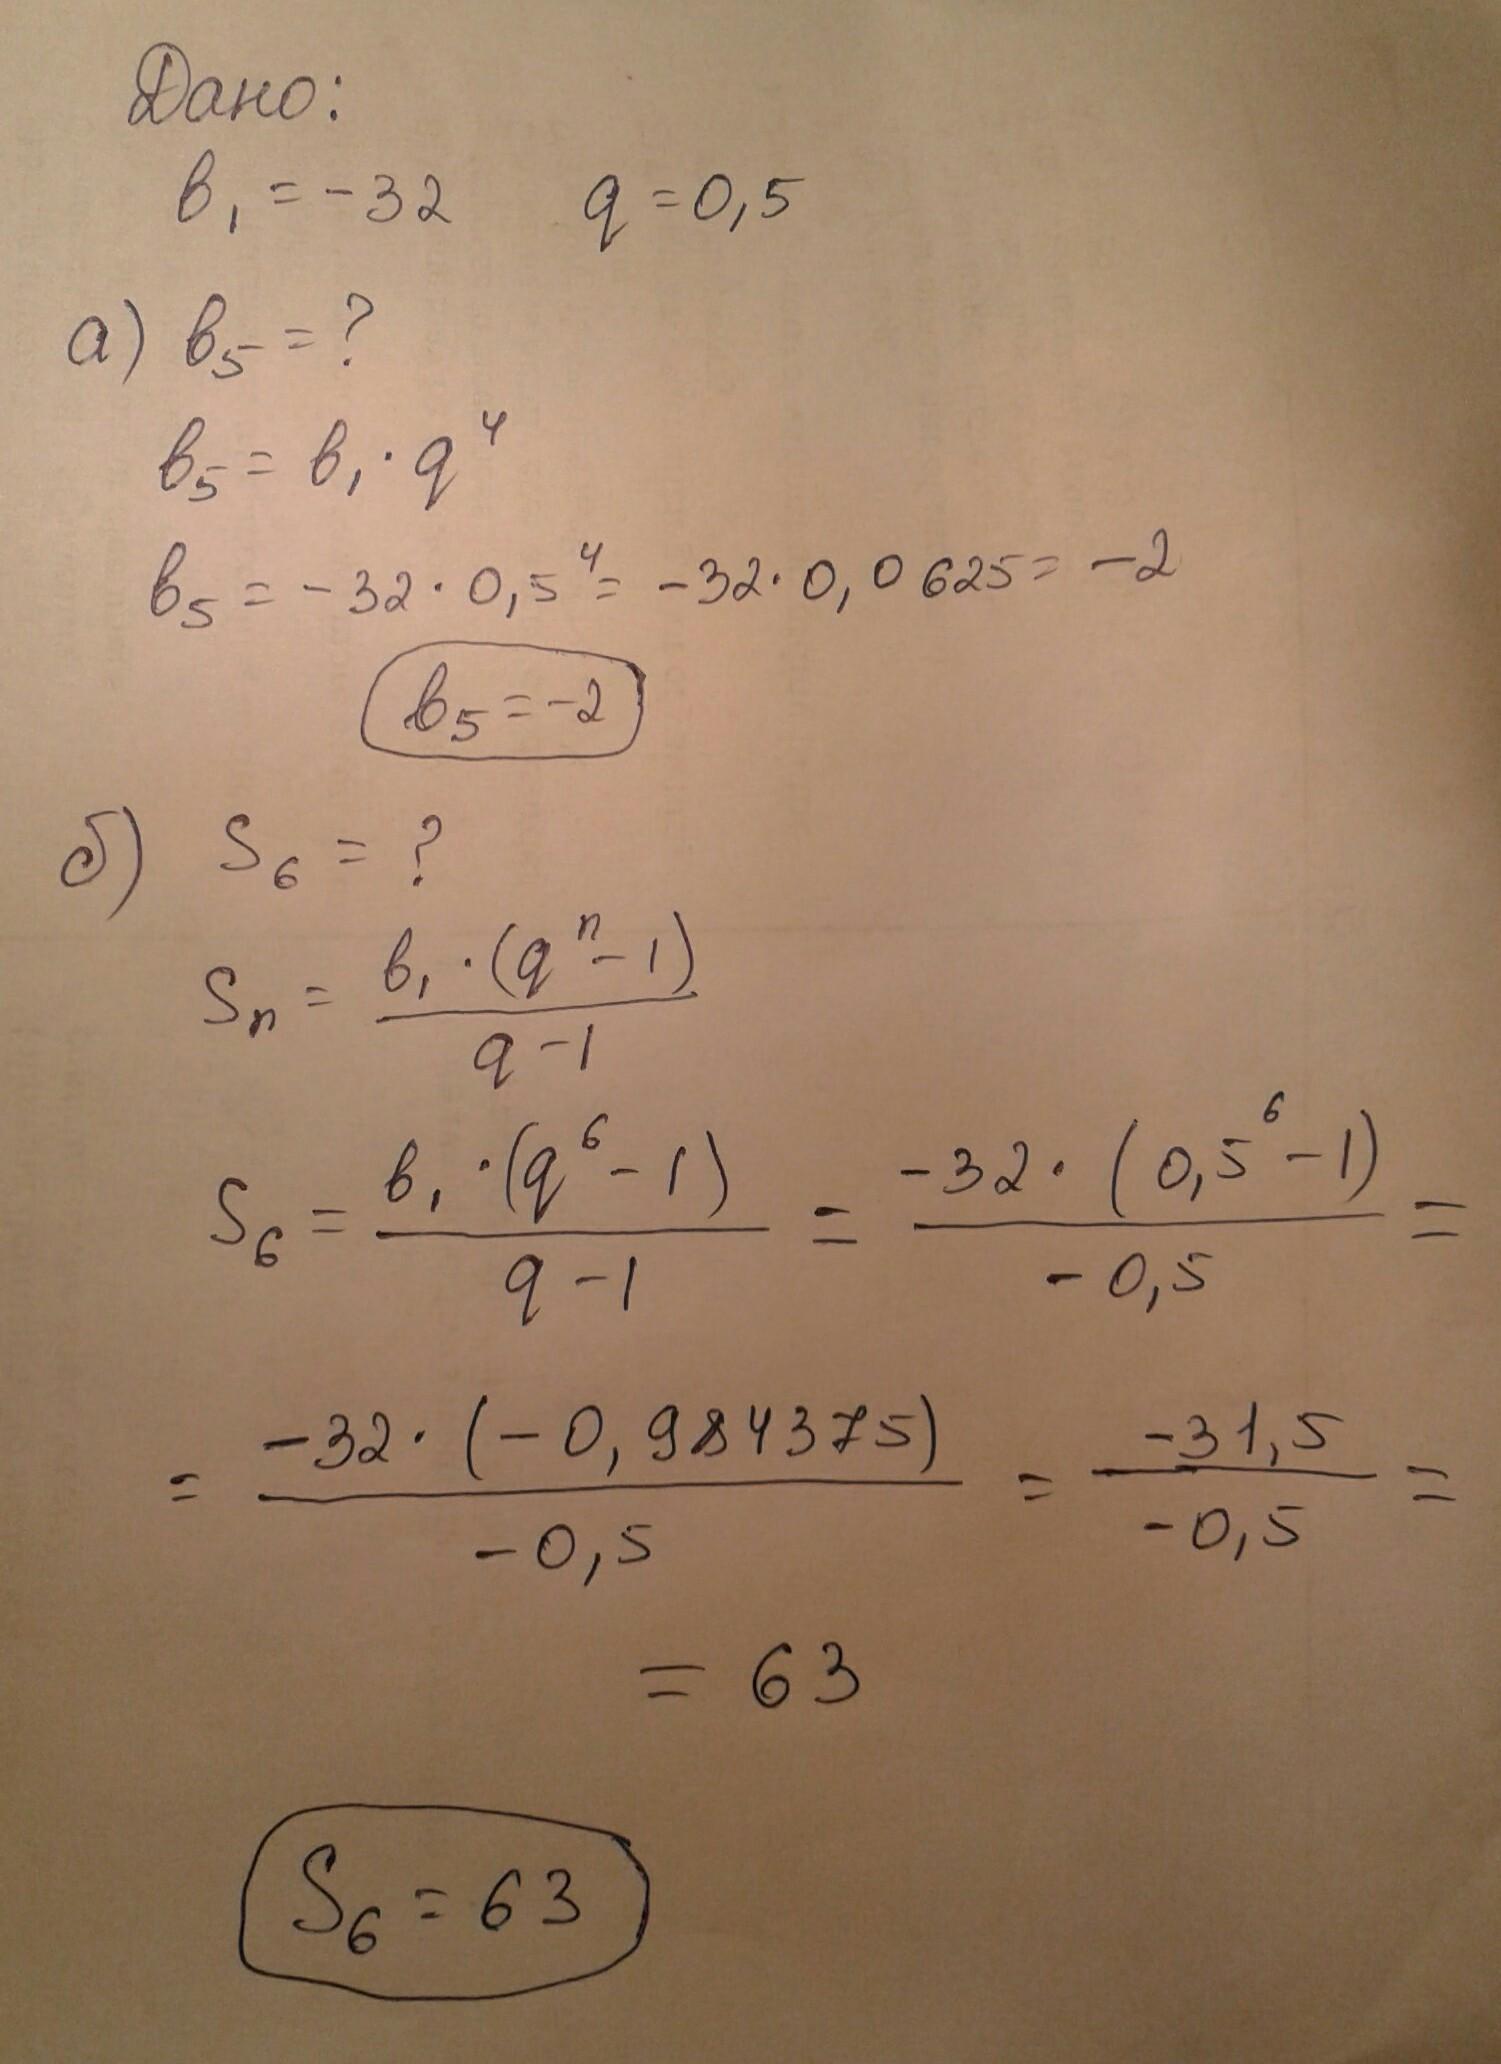 Дано:
b₁ = -32 q = 0,5
а) b₅ = ?
b₅ = b₁ · q⁴
b₅ = -32 · 0,5⁴ = -32 · 0,0625 = -2
b₅ = -2
б) S₆ = ?
Sₙ = b₁ · (qⁿ - 1) / q - 1
S₆ = b₁ · (q⁶ - 1) / q - 1 = -32 · (0,5⁶ - 1) / -0,5 =
= -32 · (-0,984375) / -0,5 = -31,5 / -0,5 =
= 63
S₆ = 63